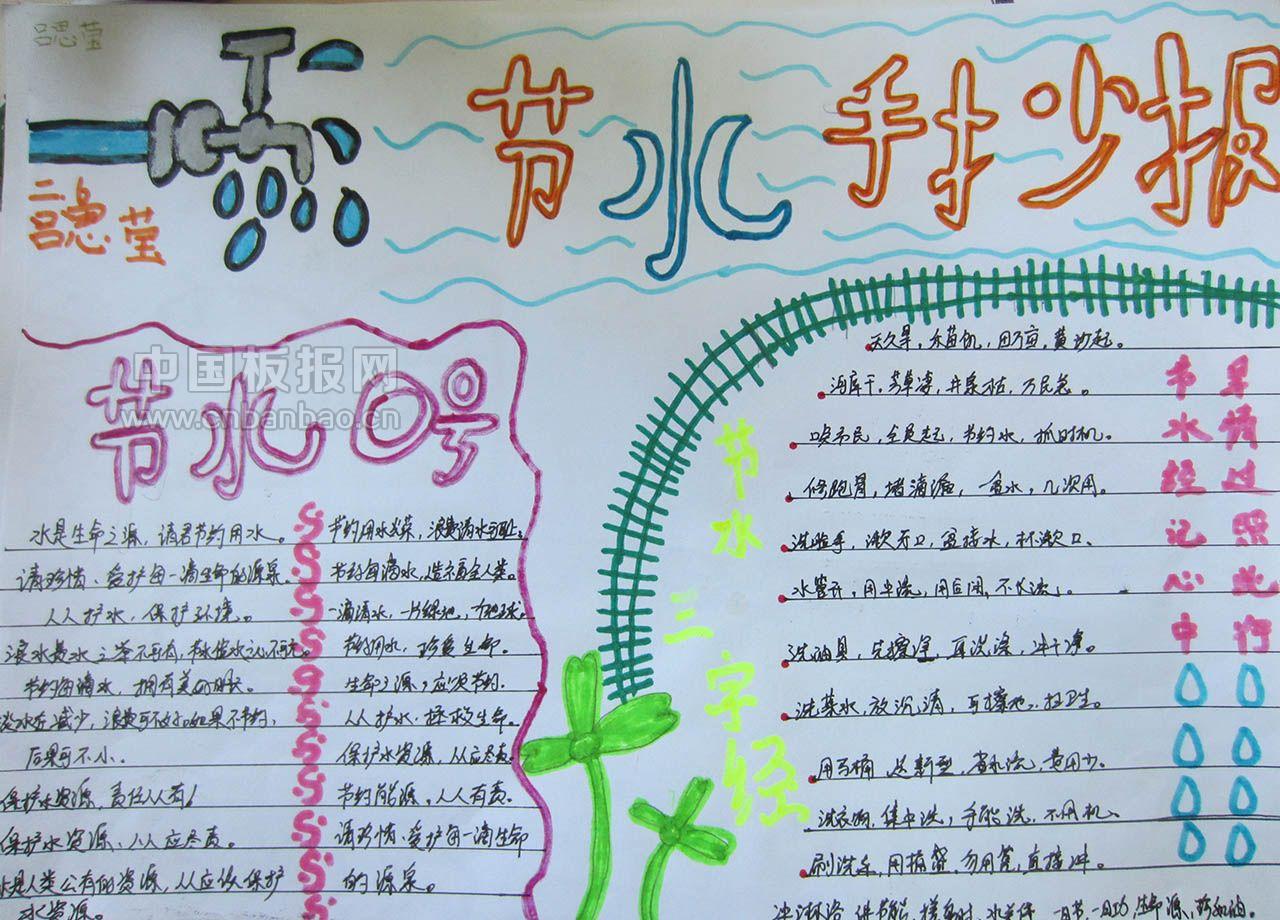 吕思莹
节水手抄报
二上
吕思莹
中国板报网
www.cnbanbao.cn
节水口号
水是生命之源，请君节约用水。
请珍惜、爱护每一滴生命的源泉。
人人护水，保护环境。
节约每滴水，拥有美好明天。
后果可不小.
保护水资源，责任人人有！
保护水资源、人人应尽责。
是人类公有的资源，人人应该保护
水资源。
节约用水光荣，浪费滴水可耻。
节约每滴水，造福全人类。
一滴清水，一片绿地，一个地球。
节约用水，珍爱生命。
生命之源，应该节约.
人人护水、拯救生命。
保护水资源，人人应尽责
节约能源，人人有责.
请珍惜、爱护每一滴生命
的源泉。
节水三字经
天久旱，禾苗饥，田万亩，黄沙起。
海库干，芳草凄，井泉枯，万民急。
唤市民，全员起，节约水，抓时机。
修跑冒，堵滴漏，一盆水，几次用。
洗脸手，漱牙口，盆接水，杯漱口、
水管开，用中洗，用后闭，不长流」。
洗油具，先擦净，再洗涤，冲干净。
洗菜水，放沉清，可擦地、扫卫生。
用马桶，选新型，省水流，费用少。
洗衣物，集中洗，手能洗，不用机、
刷洗车，用桶盛，勿用管，直接冲。
节水经记心中
旱情过照此行